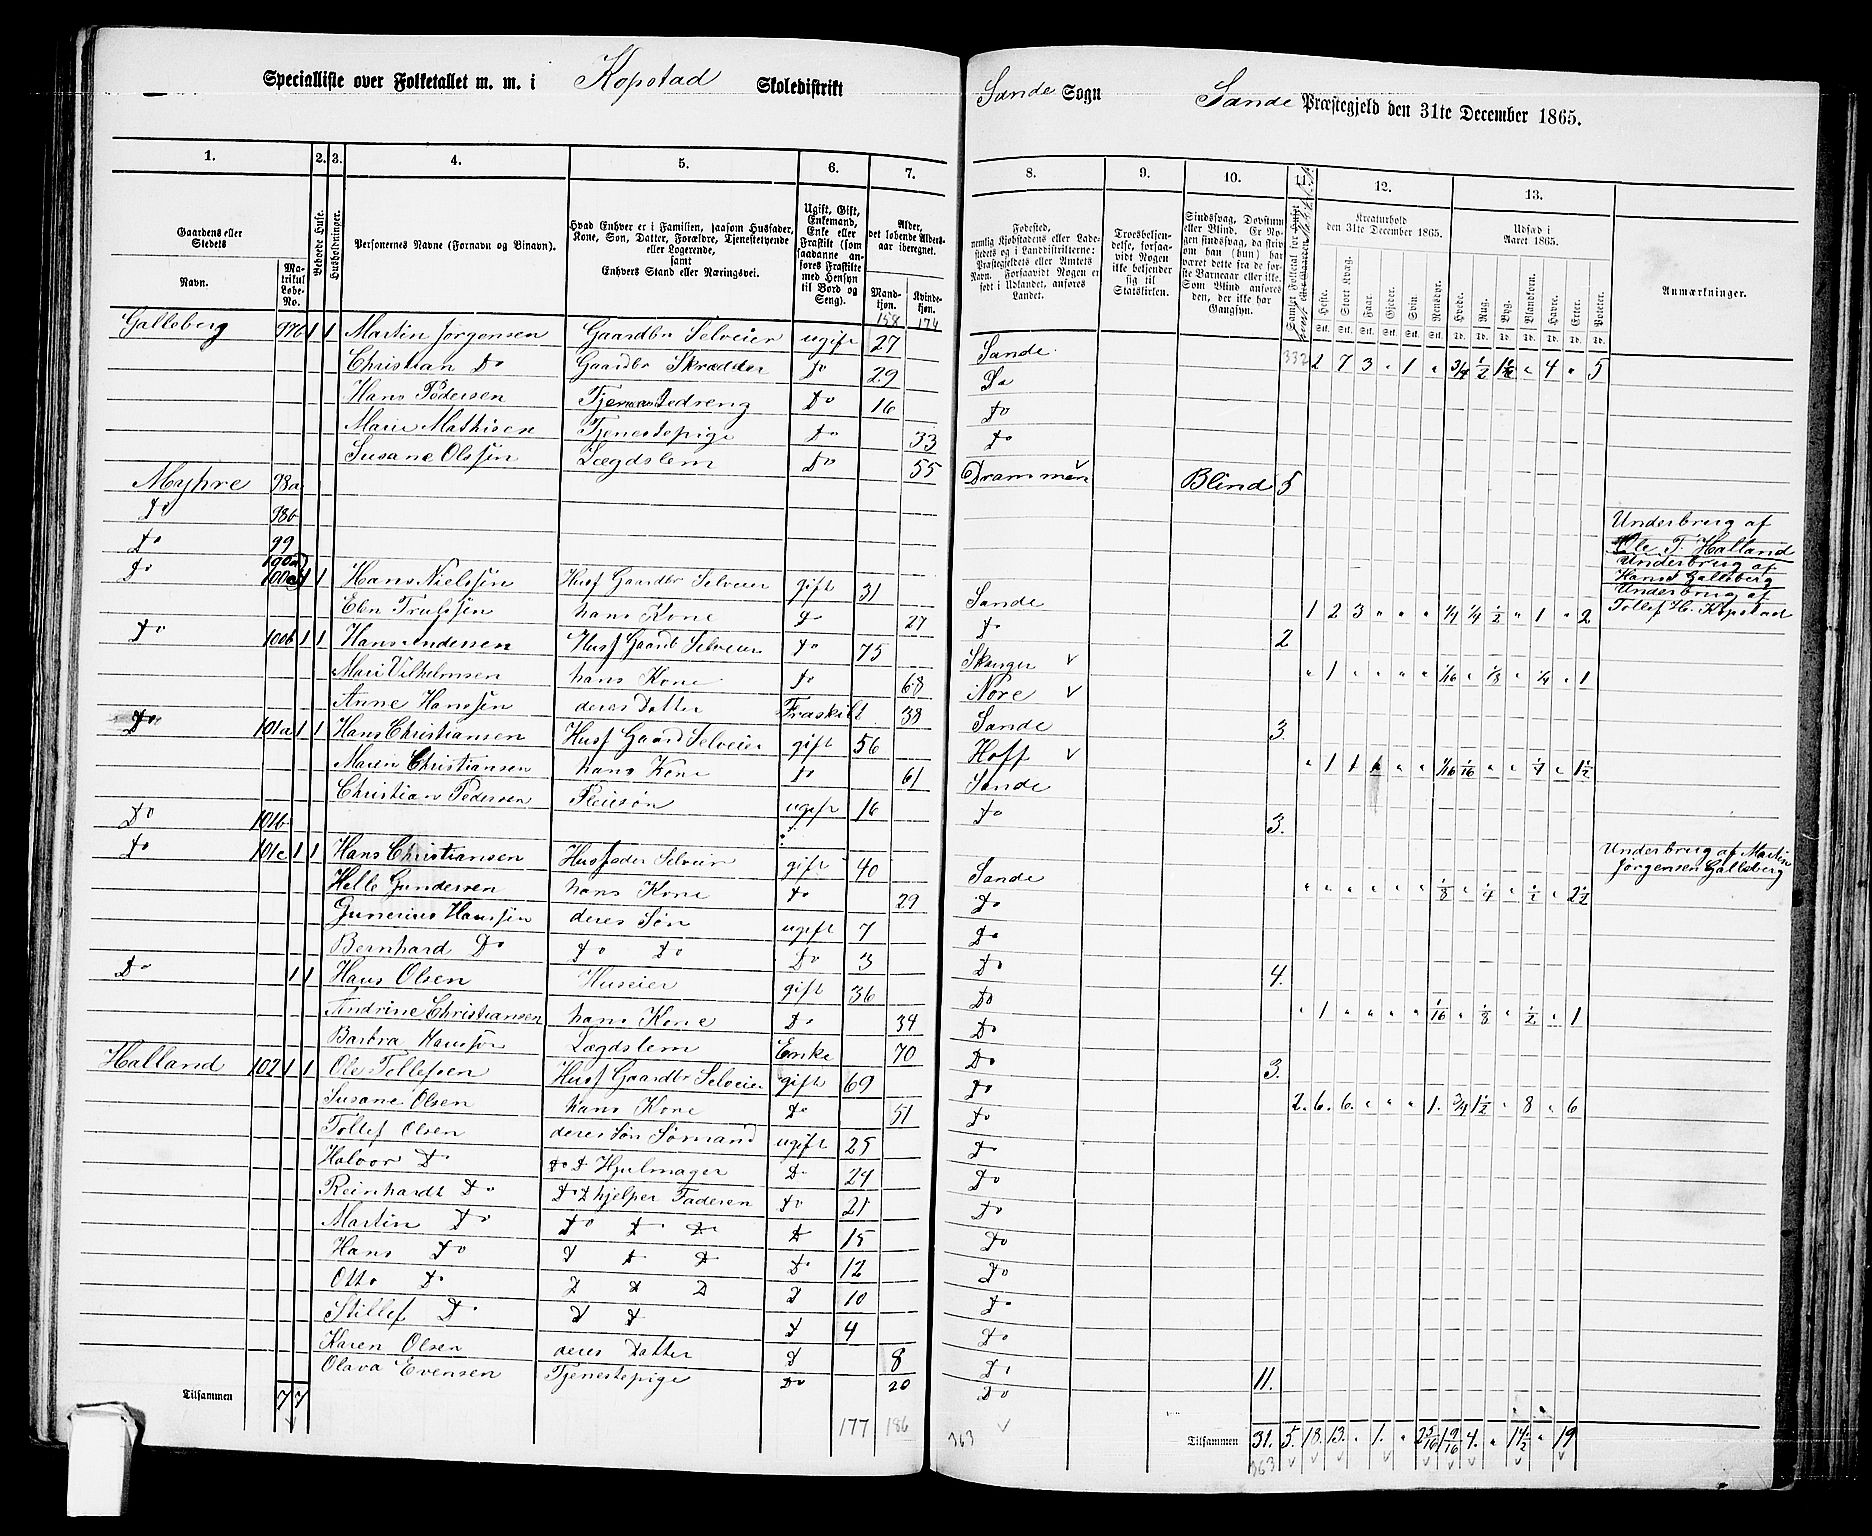 Specialliste over Folketallet m. m. i Kopstad Skoledistrikt Sande Sogn Sande Præstegjeld den 31te December 1865.
1. 2. 3. 4. 5. 6. 7. 8. 9. 10. 11. 12. 13.
Gaardens eller Stedets
Navn.
Matrikul Løbe-No.
Beboede Huse.
Husholdninger.
Personernes Navne (Fornavn og Binavn).
Hvad Enhver er i Familien, saasom Husfader, Kone, Søn, Datter, Forældre, Tjenestetyende eller Logerende, samt Enhvers Stand eller Næringsvei.
Ugift, Gift, Enkemand, Enke eller Fraskilt (som saadanne anføres Fraskilte med Hensyn til Bord og Seng).
Alder, det løbende Aldersaar iberegnet.
Mandkjøn. Kvindekjøn.
158 174
Fødested, nemlig Kjøbstadens eller Ladestedets og i Landdistrikterne: Præstegjeldets eller Amtets Navn. Forsaavidt Nogen er født i Udlandet, anføres Landet.
Troesbekjendelse, forsaavidt Nogen ikke bekjender sig til Statskirken.
Sindssvag, Døvstum eller Blind. Er Nogen sindssvag, da skrives om han (hun) har været dette fra de første Barneaar eller ikke. Som Blind anføres den, der ikke har Gangsyn.
Kreaturhold den 31te December 1865.
Heste. Stort Kvæg. Faar. Gjeder. Svin. Rensdyr.
Udsæd i Aaret 1865.
Hvede. Rug. Byg. Blandkorn. Havre. Erter. Poteter.
Anmærkninger.
Galleberg 97b 1 1 Martin Jørgensen Gaardbr Selveier ugift 27 Sande 332 2 7 3 " 1 " 3/4 1/2 1 1/2 " 4 " 5
Christian Do Gaardbr Skrædder Do 29 Do
Hans Pedersen Tjenestedreng Do 16 Do
Marie Mathisen Tjenestepige Do 33 Do
Susane Olssen Lægdslem Do 55 Drammen Blind 5
Myhre 98a
Do 98b Underbrug af
Do 99 Ole T. Halland
Do 100a Underbrug af
Hans Galleberg
Underbrug af
Tollef H. Kopstad
100a 1 1 Hans Nielssen Husf Gaardbr Selveier gift 31 Sande 1 2 3 " " " 1/4 1/4 1/2 " 1 " 2
Ebn Trulssen hans Kone Do 27 Do 2
Do 100b 1 1 Hans Andersen Husf Gaardb Selveier Do 75 Skouger " 1 " " " " 1/16 " 1/8 " 1/4 " 1
Mari Vilhelmsen hans Kone Do 68 Nore
Anne Hanssen deres Datter Fraskilt 38 Sande 3.
Do 101a 1 1 Hans Christiansen Husf Gaard Selveier gift 56 Hoff " 1 1 " " " 1/16 1/16 " " 1/4 " 1 1/2
Maren Christiansen hans Kone Do 61 Sande
Christian Pedersen Pleiesøn ugift 16 Do 3.
Do 101b Underbrug af Martin
Jørgensen Galleberg
Do 101c 1 1 Hans Christiansen Husfader Selveier gift 40 Sande " " " " " " 1/8 " 1/4 " 1/2 " 2 1/2
Helle Gundersen hans Kone Do 29 Do
Gunerius Hanssen deres Søn ugift 7 Do
Bernhard Do Do Do Do 3 Do 4.
Do 1 1 Hans Olsen Huseier gift 36 Do " 1 " " " " 1/16 " 1/8 " 1/2 " 1
Andrine Christiansen hans Kone Do 34 Do
Barbra Hanssen Lægdslem Enke 70 Do 3.
Halland 102 1 1 Ole Tollefsen Husf Gaardbr Selveier gift 69 Do 2. 6. 6. " " " 1. 3/4 1 1/2 " 8 " 6
Susane Olsen hans Kone Do 51 Do
Tollef Olsen deres Søn Sømand ugift 25 Do
Halvor Do Do D Hjulmager D 24 Do
Reinhardt Do D D hjelper Faderen Do 21 Do
Martin Do Do D D D 15 Do
Hans Do D D D Do 12 Do
Otto Do D D D D 10 Do
Stillef Do D D D 4 Do
Karen Olsen deres Datter D 8 Do
Olava Evensen Tjenestepige Do 20 Do 11.
Tilsammen 7 7 177 186 363 Tilsammen 31. 5. 18. 13. " 1. " 2 3/16 1 9/16 4. " 14 1/2 " 19
363